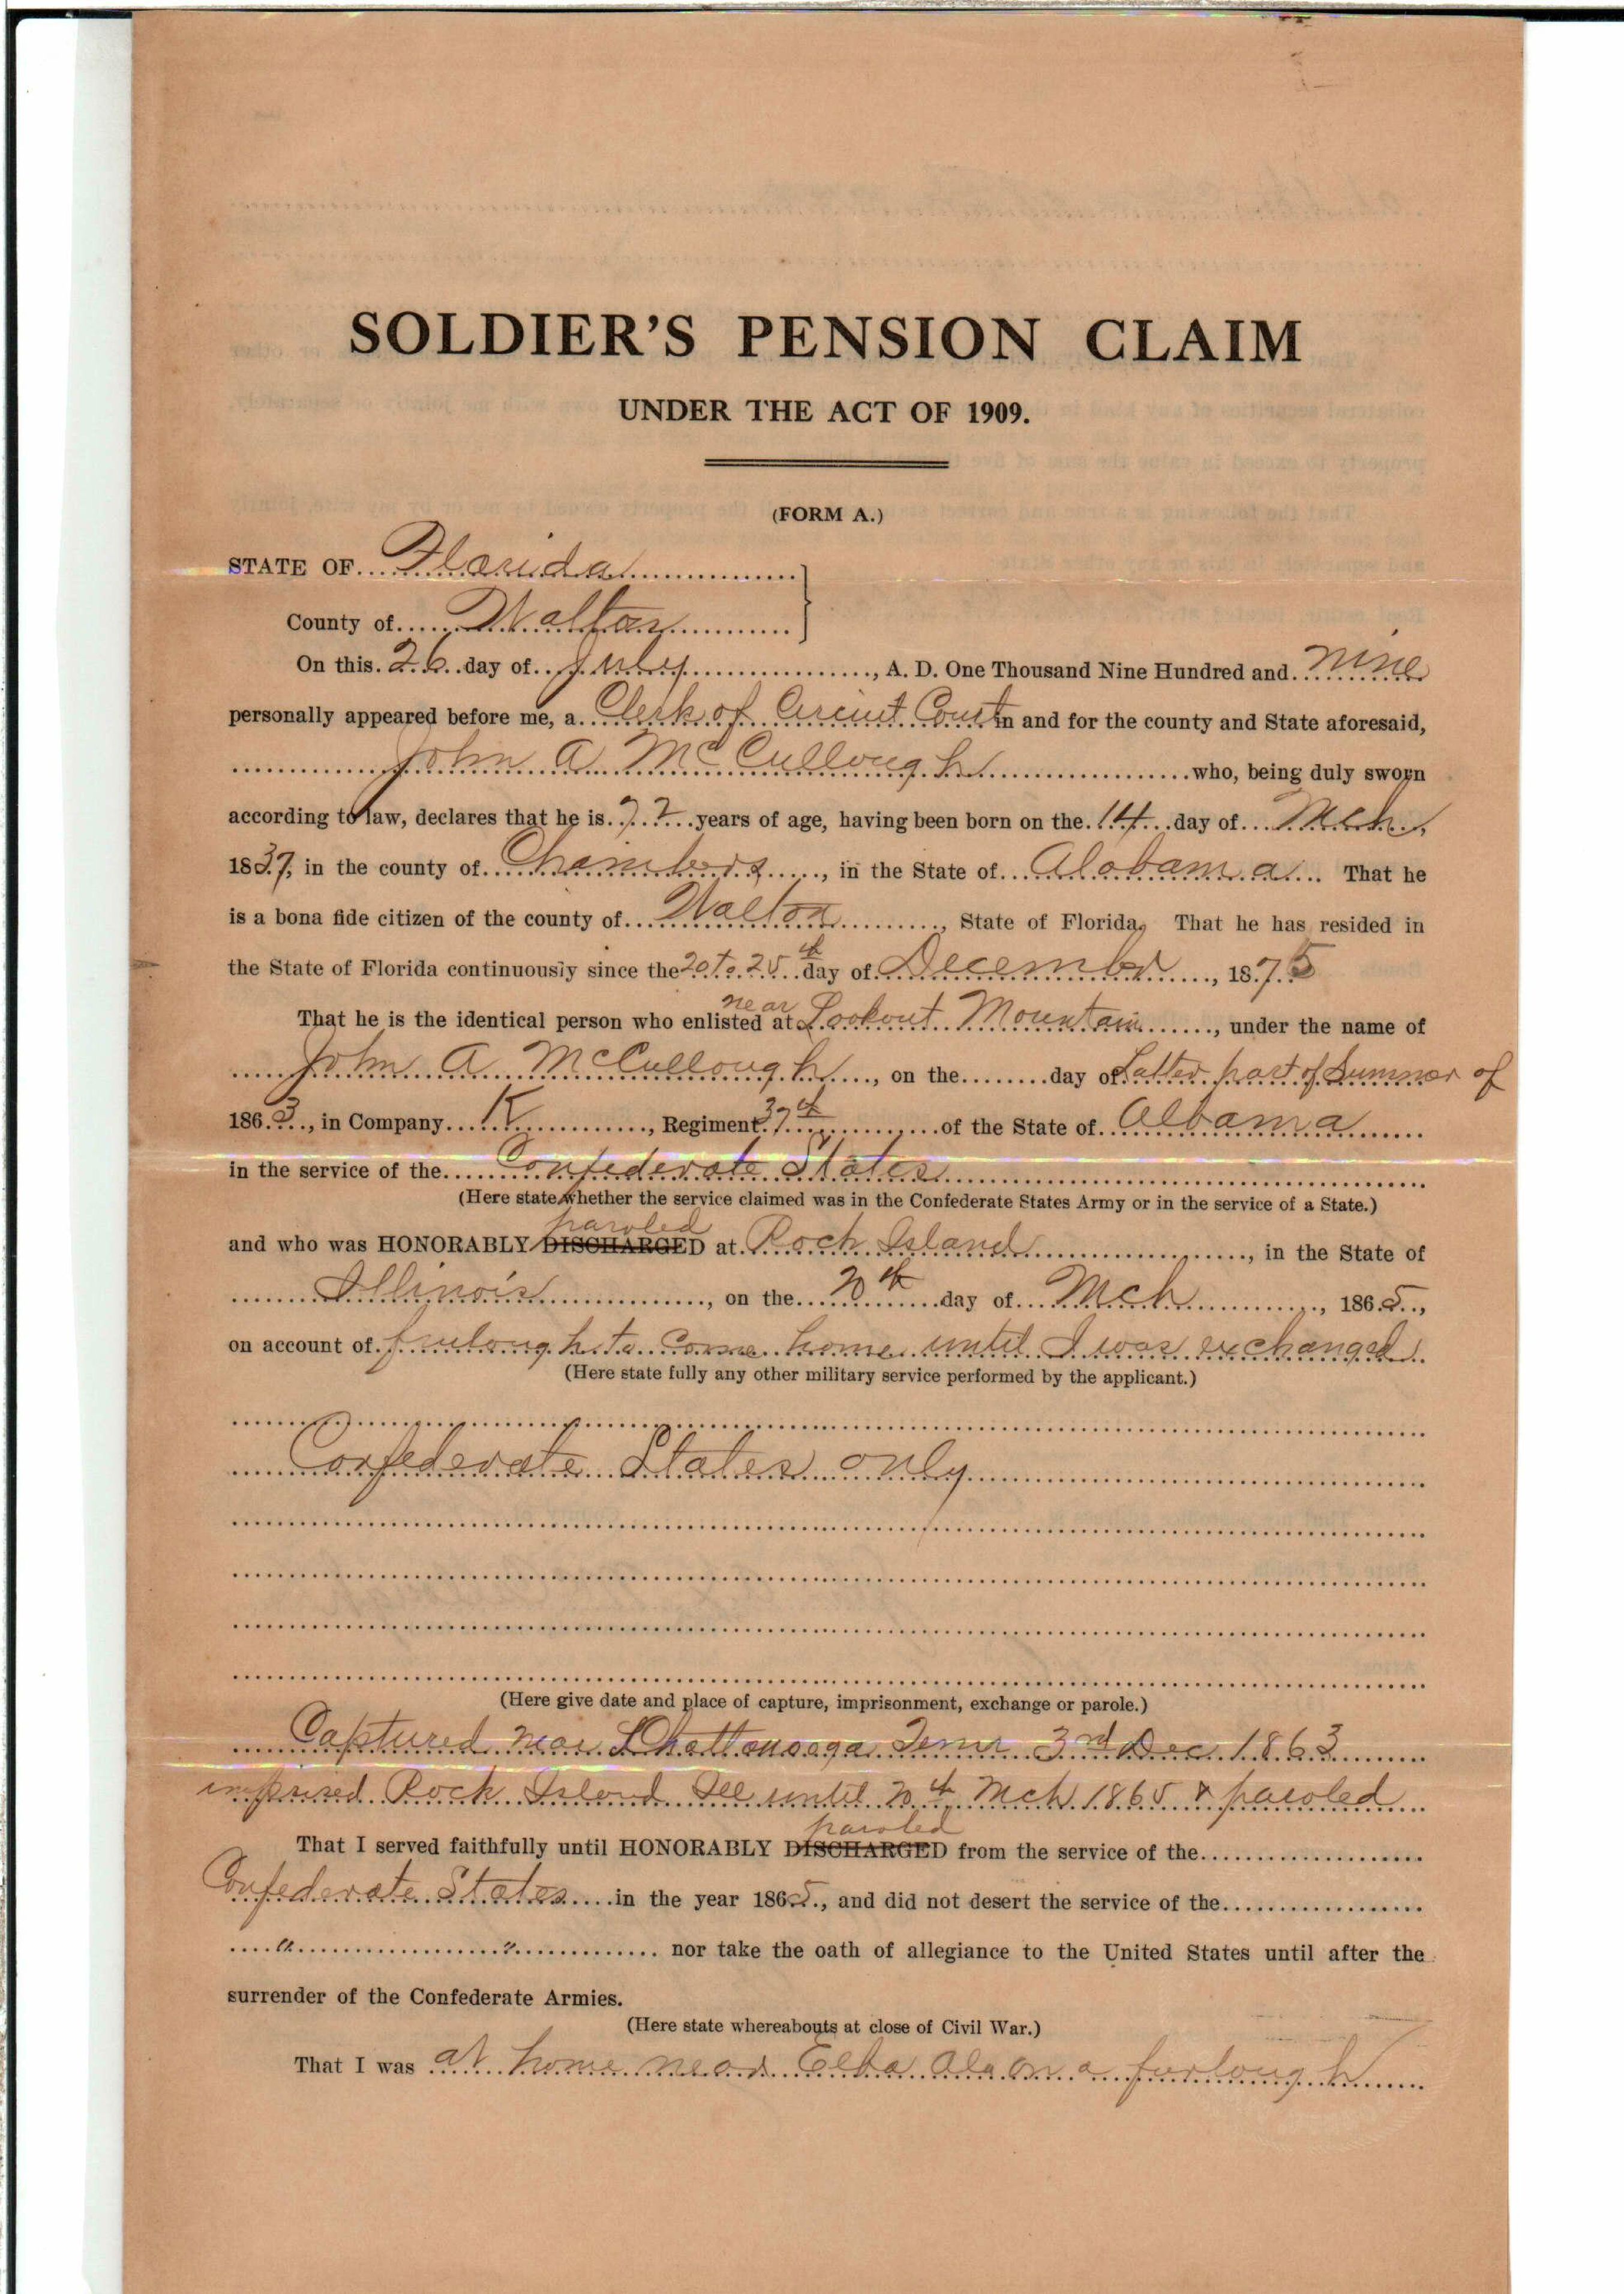 SOLDIER'S PENSION CLAIM
UNDER THE ACT OF 1909.
(FORM A.)
STATE OF Florida
County of Walton
On this 26 day of July, A. D. One Thousand Nine Hundred and nine
personally appeared before me, a Clerk of Circuit Court in and for the county and State aforesaid,
John A McCullough who, being duly sworn
according to law, declares that he is 72 years of age, having been born on the 14 day of Mch,
1837, in the county of Chambers, in the State of Alabama. That he
is a bona fide citizen of the county of Walton, State of Florida, That he has resided in
the State of Florida continuously since the 20 to 25th day of December, 1875
near
That he is the identical person who enlisted at Lookout Mountain, under the name of
John A McCullough, on the day of Latter part of Summer of
1863, in Company K, Regiment 37th of the State of Albama
in the service of the Confederate States
(Here state whether the service claimed was in the Confederate States Army or in the service of a State.)
paroled
and who was HONORABLY DISCHARGED at Rock Island, in the State of
Illinois, on the day of Mch, 1865,
on account of furlough to Come home until I was exchanged
(Here state fully any other military service performed by the applicant.)
Confederate States only
(Here give date and place of capture, imprisonment, exchange or parole.)
Captured near Chattanooga Tenn 3rd Dec 1863
imprised Rock Island Ill until Mch 1865 & paroled
paroled
That I served faithfully until HONORABLY DISCHARGED from the service of the
Confederate States in the year 1865, and did not desert the service of the
" " nor take the oath of allegiance to the United States until after the
surrender of the Confederate Armies.
(Here state whereabouts at close of Civil War.)
That I was at home near Elba Ala on a furlough